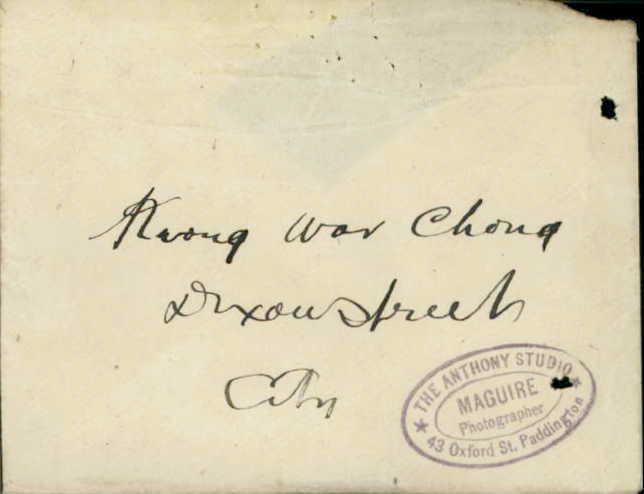 Kwong War Chong
Dixon Street
City
THE ANTHONY STUDIO
MAGUIRE
Photographer
43 Oxford St. Paddington